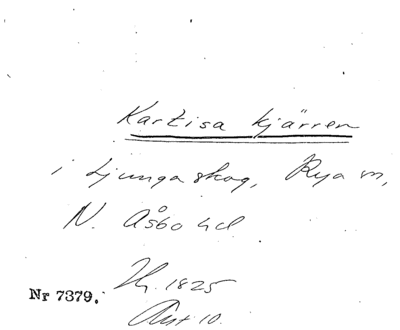 Kartisa kjärren
i Ljungaskog, Rya sn,
N. Åsbo hd
1825
Nr 7379.
10.